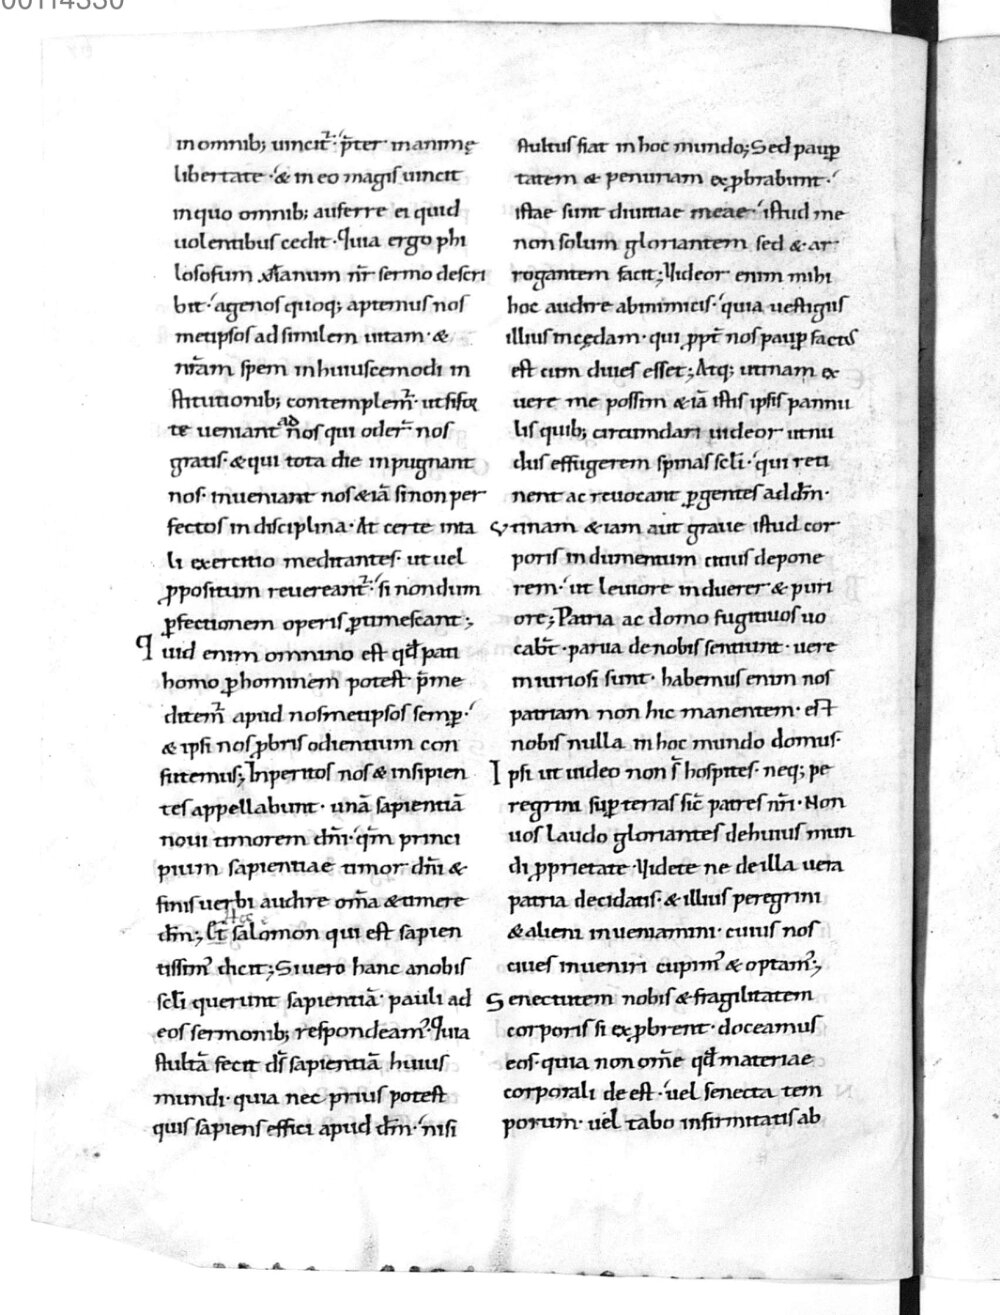 00114330
in omnib; uincit᷑· p̄ter in animę
libertate· & in eo magiſ uincit
in quo omnib; auferre ei quid
uolentibuſ cedit· Quia ergo phi
loſofum xp̄ianum nr̄ ſermo deſcri
bit· agenoſ quoq; aptemuſ noſ
metipſoſ ad ſimilem uitam· &
nr̄am ſpem in huiuſcemodi in
ſtitutionib; contemplem᷑· ut ſi for
te ueniant ad noſ qui oder̄ noſ
gratiſ· & qui tota die inpugnant
noſ· inueniant noſ & iā ſi non per
fectoſ in diſciplina· At certe in ta
li exercitio meditanteſ· ut uel
ꝓpoſitum reuereant᷑· ſi nondum
ꝑfectionem operiſ ꝑtimeſcant;
Quid enim omnino eſt qđ pati
homo ꝑ hominem poteſt· p̄me
ditem᷑ apud noſmetipſoſ ſemꝑ·
& ipſi noſ ꝓbriſ odientium con
fitemuſ; Inperitoſ noſ & inſipien
teſ appellabunt· unā ſapientiā
noui timorem dn̄i· qm̄ princi
pium ſapientiae timor dn̄i &
finiſ uerbi audire om̄a & timere
dn̄m; Et ſalomon qui eſt ſapien
tiſſimꝰ dicit; Si uero hanc a nobiſ
ſcl̄i querunt ſapientiā· pauli ad
eoſ ſermonib; reſpondeamꝰ· Quia
ſtultā fecit dſ̄ ſapientiā huiuſ
mundi· quia nec priuſ poteſt
quiſ ſapienſ effici apud dm̄· niſi
ſtultuſ fiat in hoc mundo; Sed pauꝑ
tatem & penuriam exꝓbrabunt·
iſtae ſunt diuitiae meae· iſtud me
non ſolum gloriantem ſed & ar
rogantem facit; Uideor enim mihi
hoc audire ab inimiciſ· quia ueſtigiiſ
illiuſ incędam· qui ꝓpt̄ noſ pauꝑ factuſ
eſt cum diueſ eſſet; Atq; utinam ex
uere me poſſim & iā iſtiſ ipſiſ pannu
liſ quib; circumdari uideor ut nu
duſ effugerem ſpinaſ ſcl̄i· qui reti
nent ac reuocant ꝑgenteſ ad dn̄m·
Utinam & iam aut graue iſtud cor
poriſ indumentum citiuſ depone
rem· ut leuiore induerer & puri
ore; Patria ac domo fugitiuoſ uo
cabt̄· parua de nobiſ ſentiunt· uere
iniurioſi ſunt· habemuſ enim noſ
patriam non hic manentem· eſt
nobiſ nulla in hoc mundo domuſ·
Ipſi ut uideo non ſ̄ hoſpiteſ· neq; pe
regrini ſuꝑ terraſ ſic̄ patreſ nr̄i· Non
uoſ laudo glorianteſ de huiuſ mun
di ꝓprietate· Uidete ne de illa uera
patria decidatiſ· & illiuſ peregrini
& alieni inueniamini· cuiuſ noſ
ciueſ inueniri cupimꝰ & optamꝰ;
Senectutem nobiſ & fragilitatem
corporiſ ſi exꝓbrent· doceamuſ
eoſ· quia non om̄e qđ materiae
corporali de eſt· uel ſenecta tem
porum· uel tabo infirmitatiſ ab